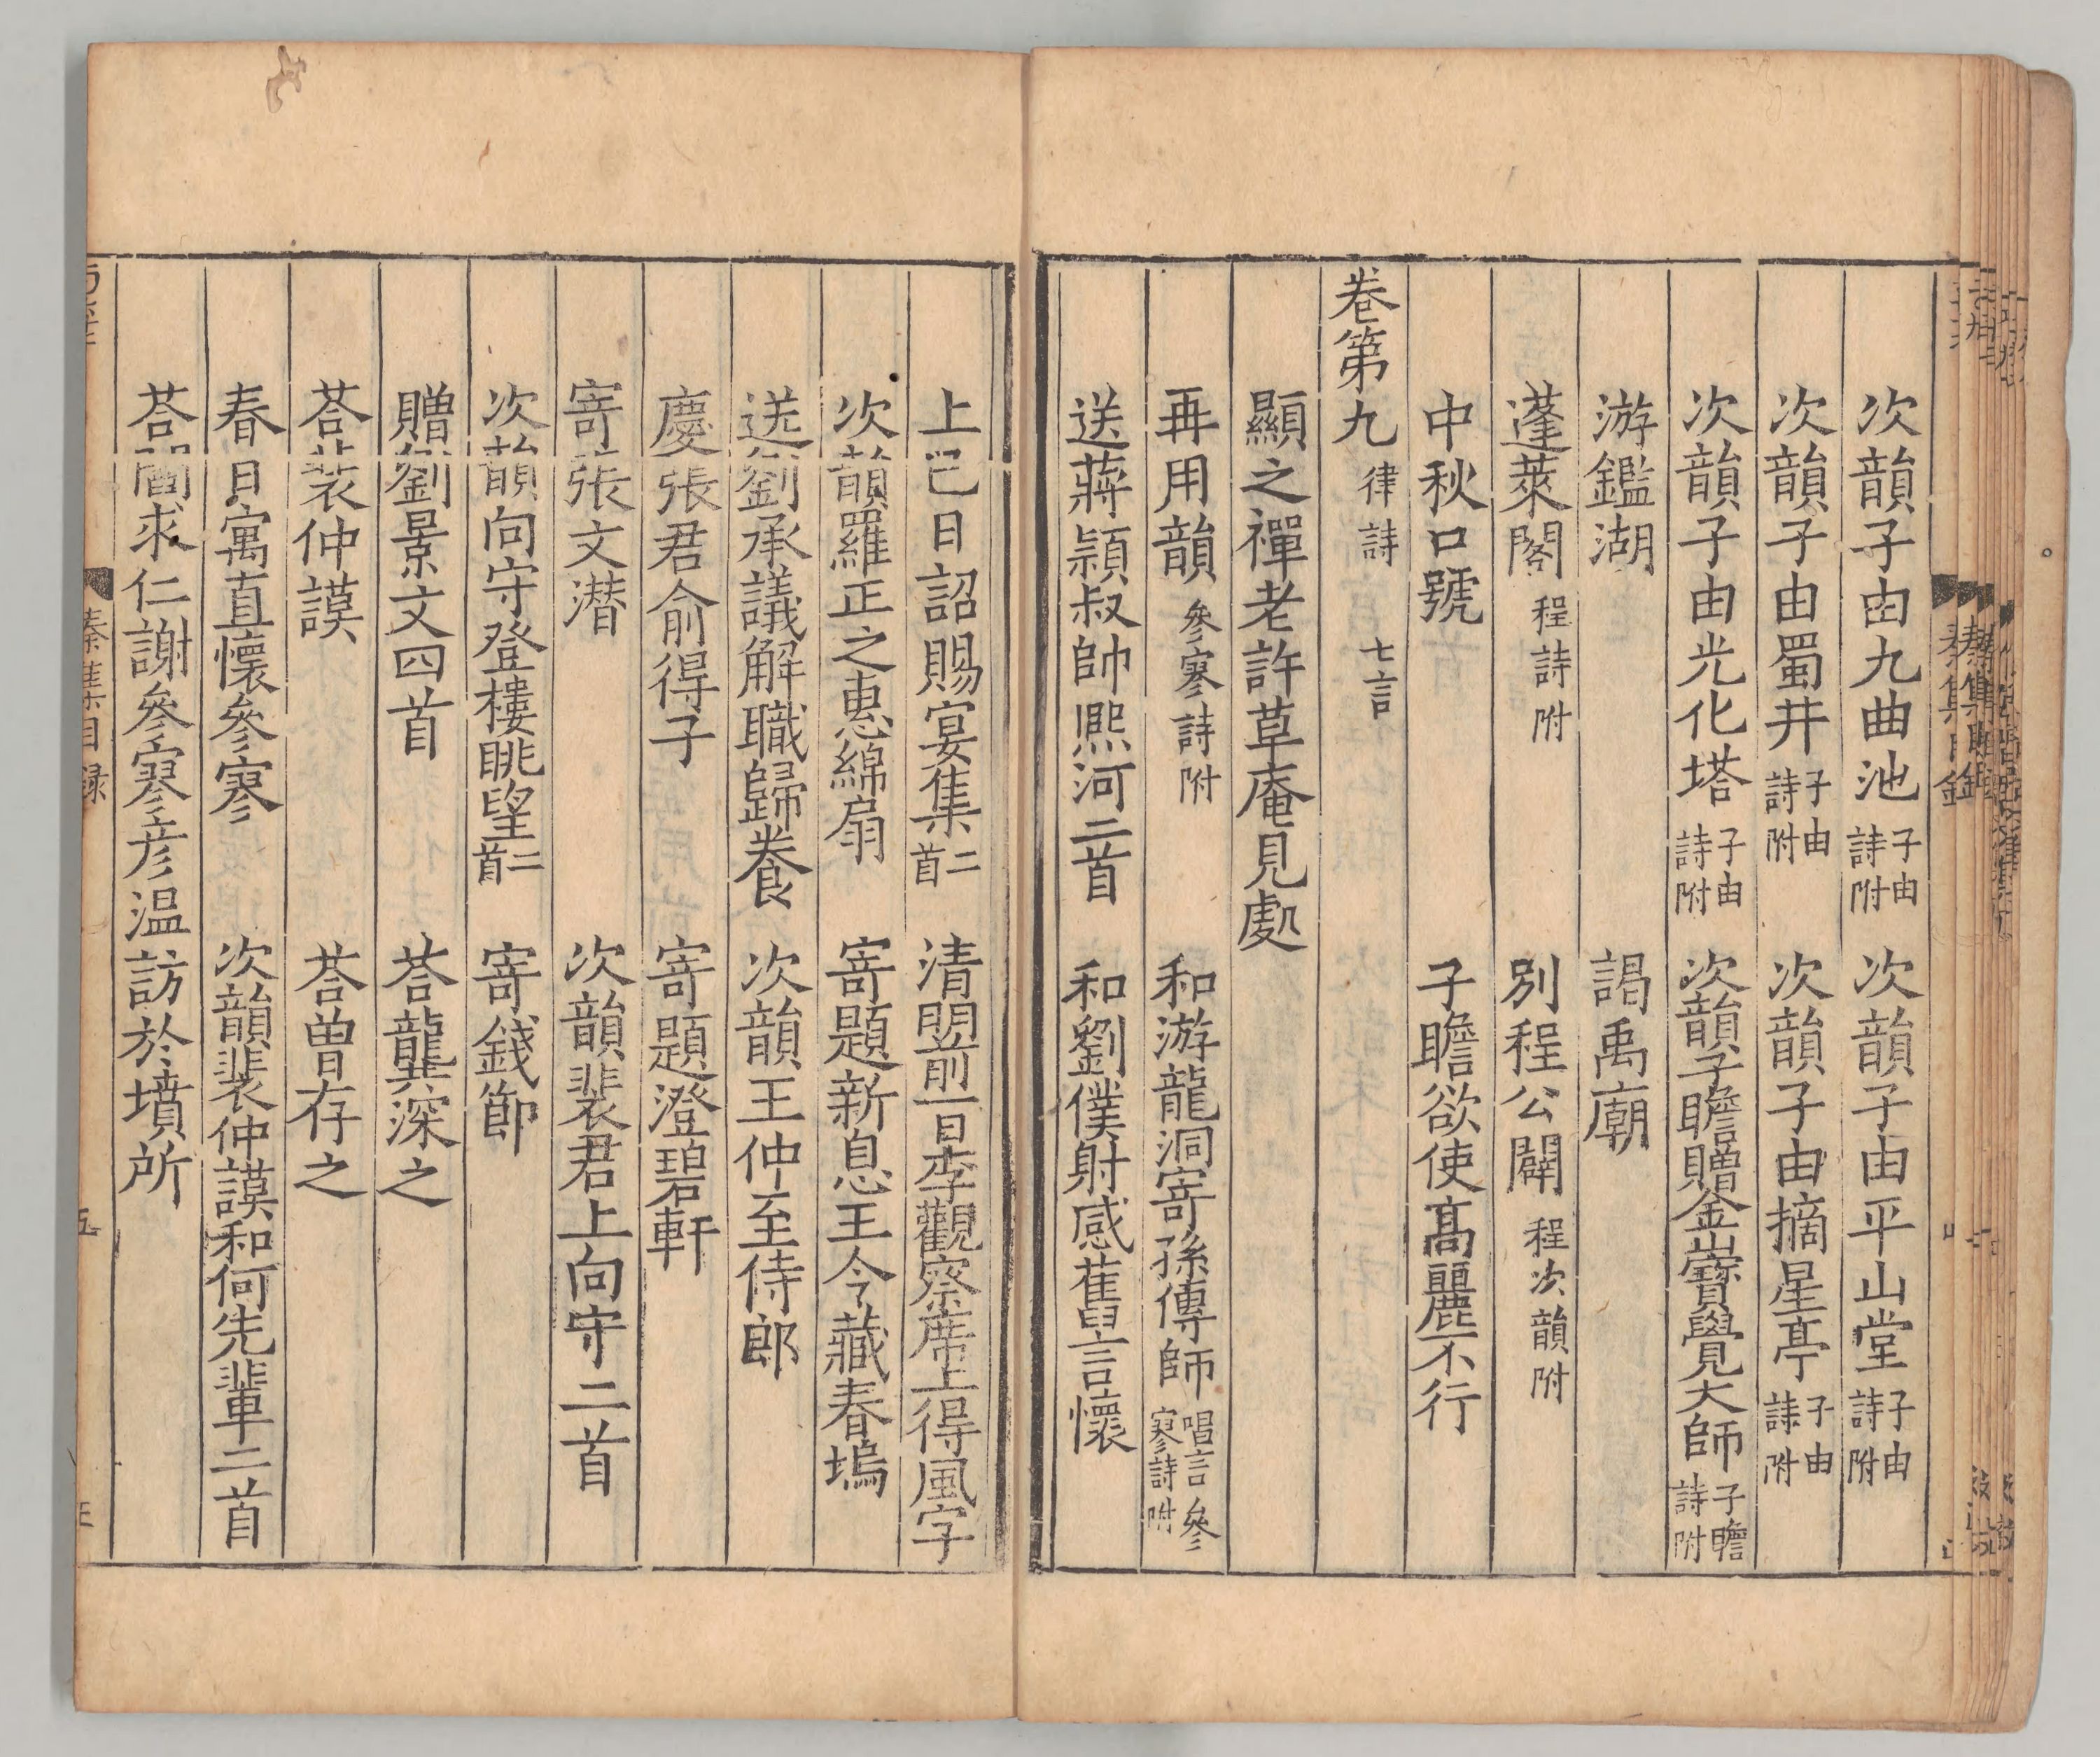 次韻子由九曲池子由詩附　次韻子由平山堂子由詩附
次韻子由蜀井子由詩附　次韻子由摘星亭子由詩附
次韻子由光化塔子由詩附　次韻子瞻贈金山寶覺大師子瞻詩附
游鑑湖　謁禹廟
蓬萊閣程詩附　別程公闢程次韻附
中秋口號　子瞻欲使髙麗不行
卷第九律詩　七言
顯之禪老許草庵見處
再用韻參寥詩附　和游龍洞寄孫傳師唱言參寥詩附
送蔣穎叔帥熈河二首　和劉僕射感舊言懷
上巳日詔賜宴集二首　清明前一日李觀察席上得風字
次韻羅正之惠綿扇　寄題新息王令藏春塢
送劉承議解職歸養　次韻王仲至侍郎
慶張君俞得子　寄題澄碧軒
寄張文潛　次韻裴君上向守二首
次韻向守登樓眺望二首　寄錢節
贈劉景文四首　荅龔深之
荅裴仲謨　荅曾存之
春日寓直懷參寥　次韻裴仲謨和何先輩二首
荅閻求仁謝參寥彦温訪於墳所
秦集目録
五